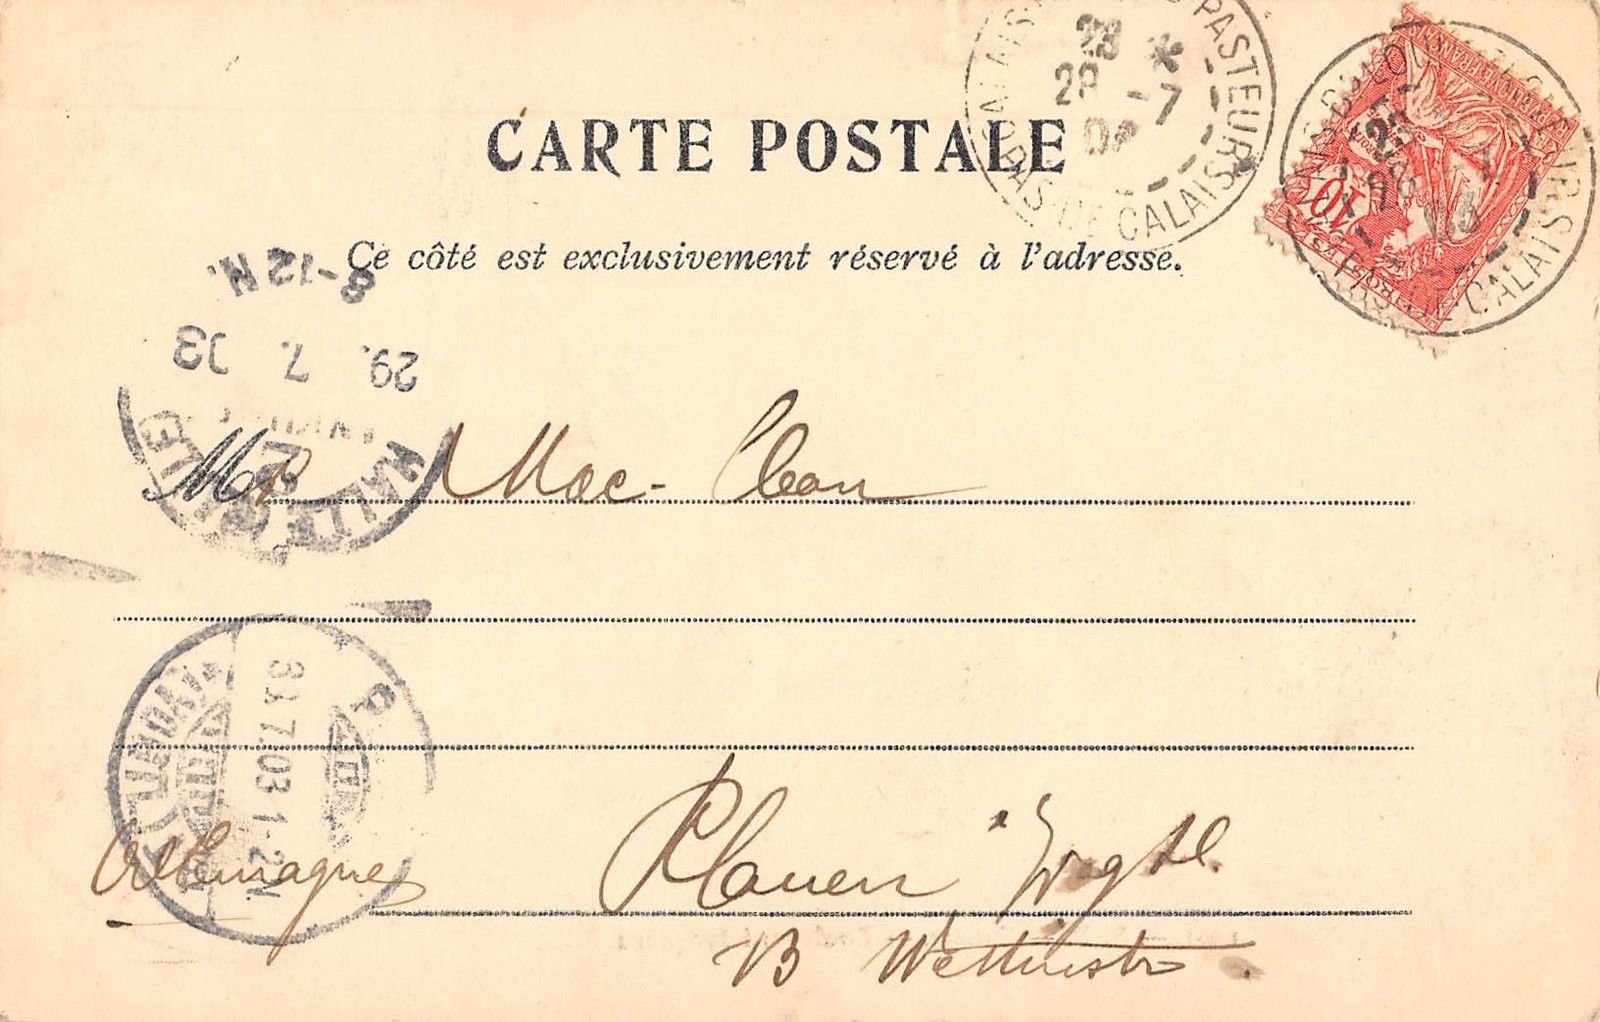 CARTE POSTALE
Ce côté est exclusivement réservé à l'adresse.
CALAIS PASTEURS
23 *
28 -7
03
PAS-DE-CALAIS
10
28
03
PAS-DE-CALAIS
8-12 N.
29. 7. 03
HALLE
Mr Mac-Clean
31.7.03.1-2N.
(VOGTL)
Allemagne
Plauen i Vogtl.
13 Wettinstr.